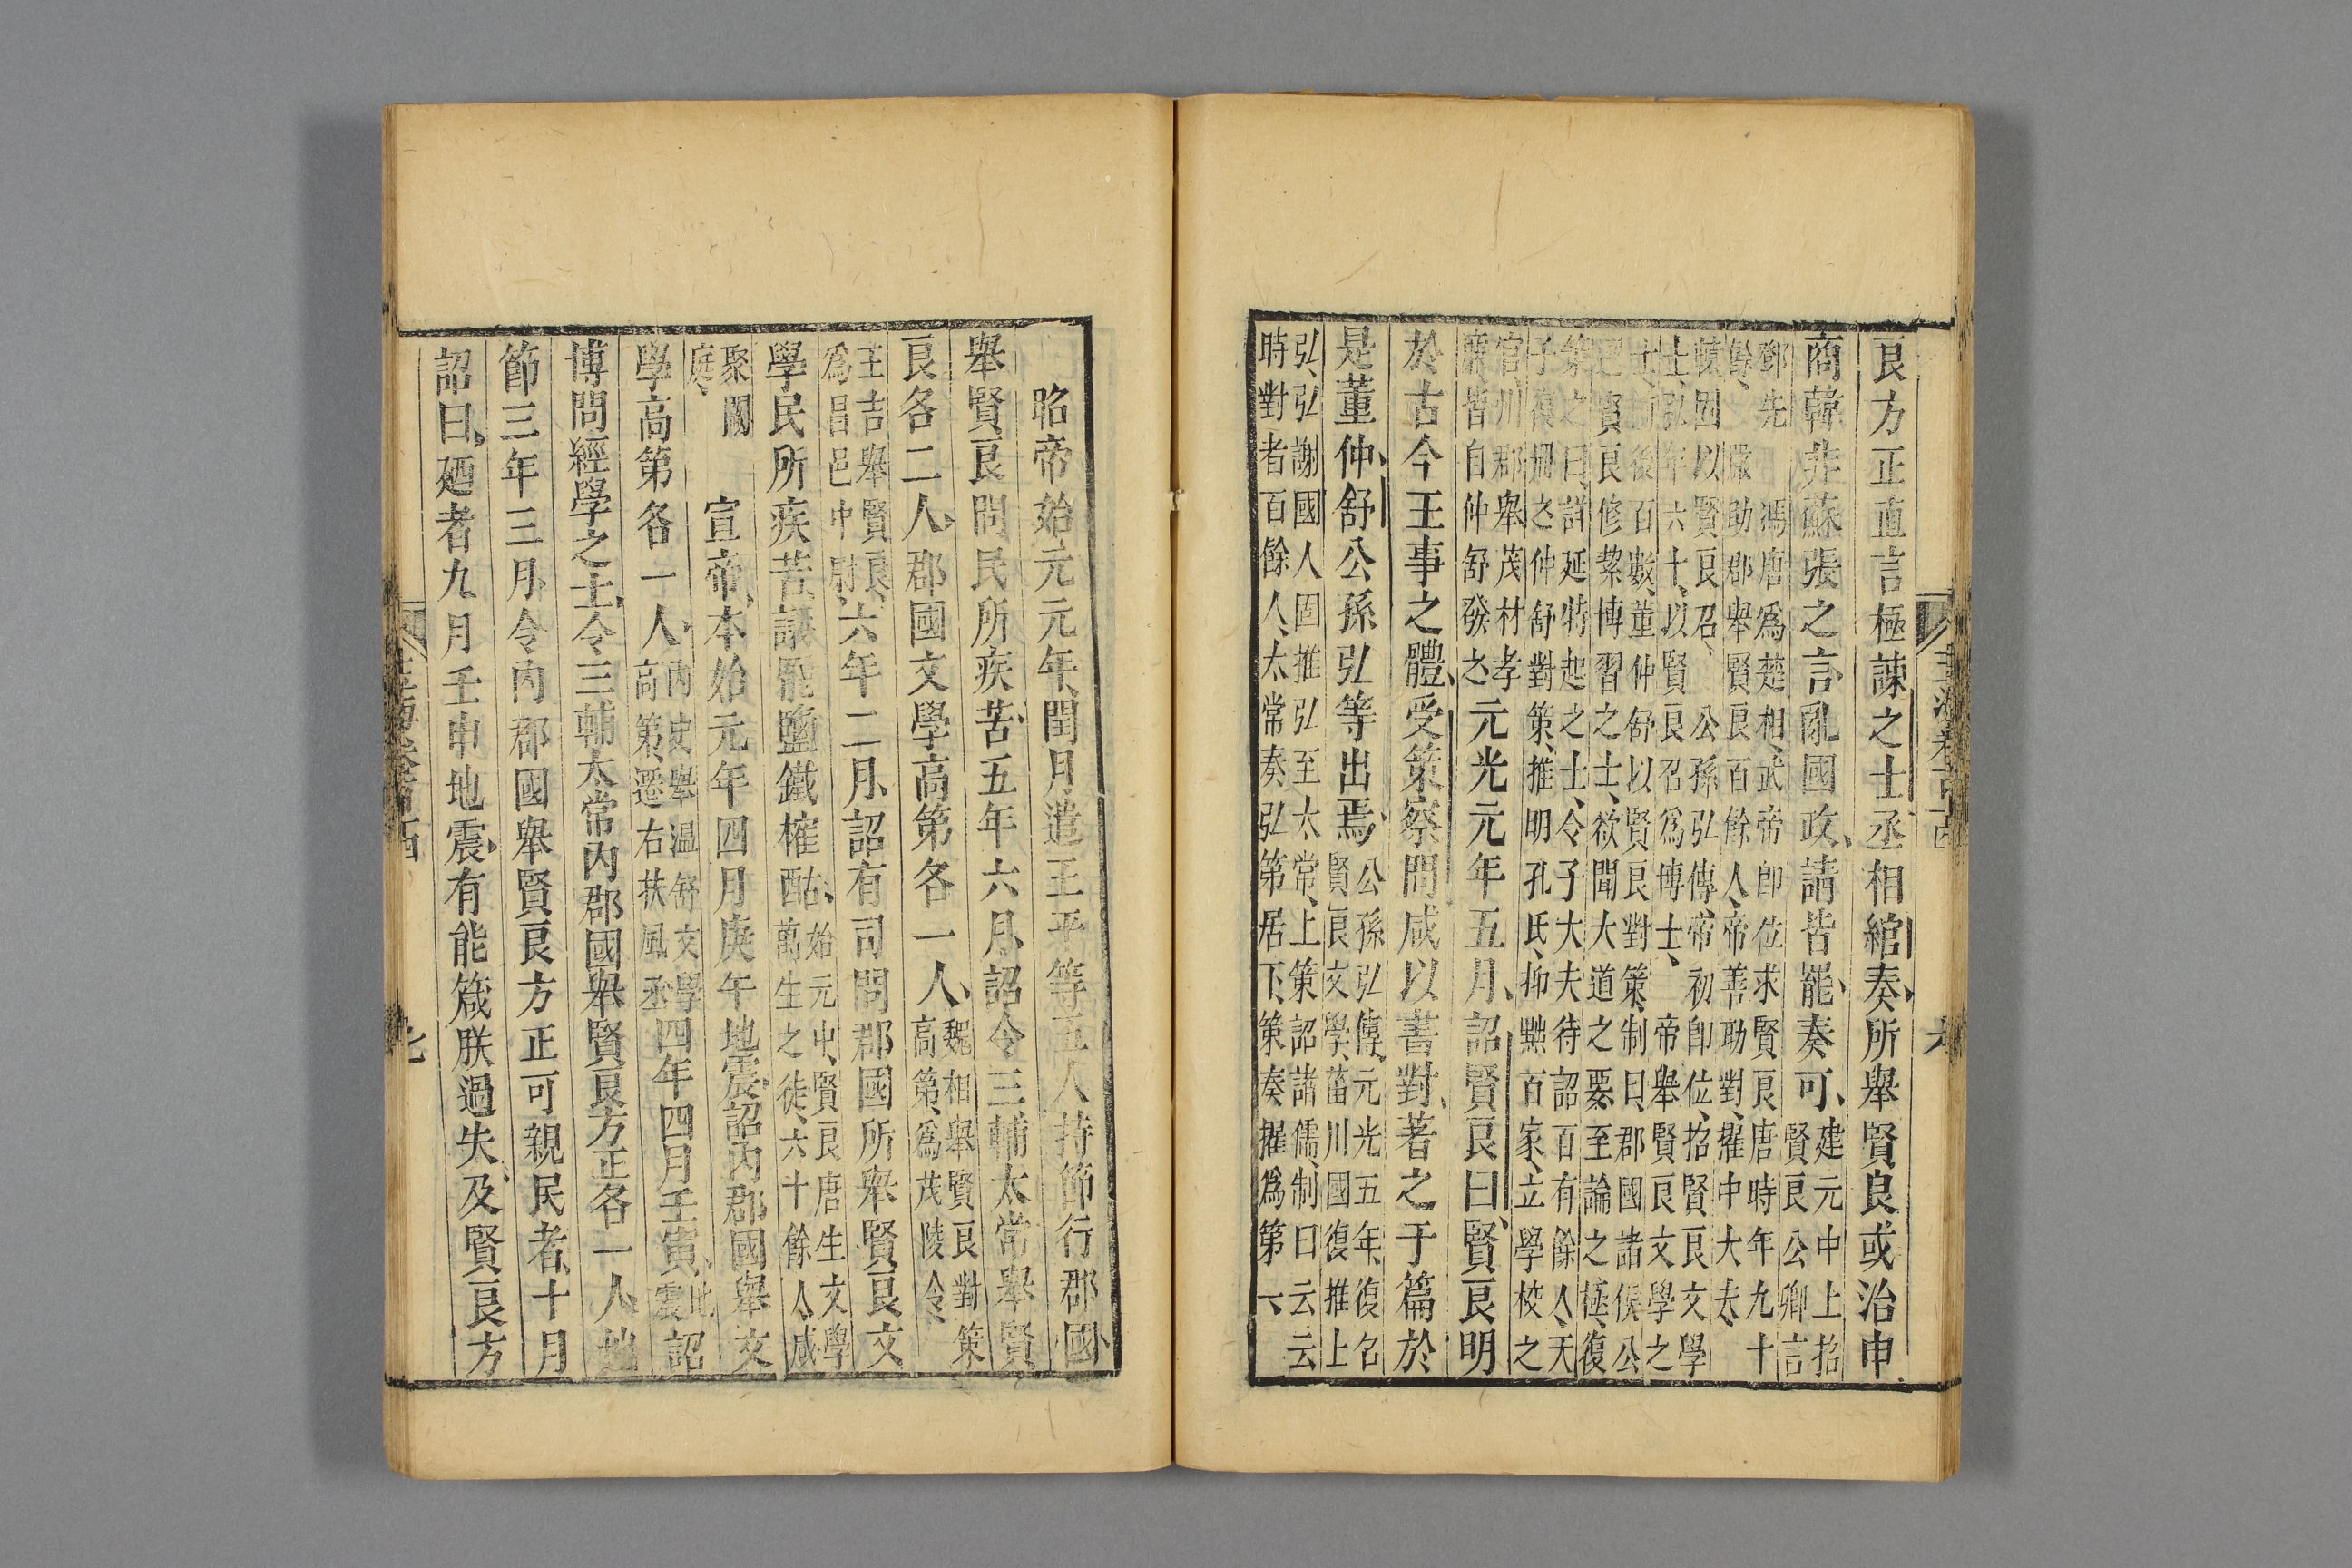 玉海卷百十四
六
良方正直言極諫之士丞相綰奏所舉賢良或治申
商韓非蘇張之言亂國政請皆罷奏可建元中上招
賢良公卿言
鄧先馮唐爲楚相武帝即位求賢良唐時年九十
餘嚴助郡舉賢良百餘人帝善助對擢中大夫
轅固以賢良召公孫弘傳帝初即位招賢良文學
士弘年六十以賢良召爲博士帝舉賢良文學之
士前後百數董仲舒以賢良對策制曰郡國諸侯公
選賢良修絜博習之士欲聞大道之要至論之極復
策之曰詳延特起之士令子大夫待詔百有餘人天
子覆冊之仲舒對策推明孔氏抑黜百家立學校之
官州郡舉茂材孝
廉皆自仲舒發之元光元年五月詔賢良曰賢良明
於古今王事之體受策察問咸以書對著之于篇於
是董仲舒公孫弘等出焉公孫弘傳元光五年復
賢良文學菑川國復推上
弘弘謝國人固推弘至太常上策詔諸儒制曰云云
時對者百餘人太常奏弘第居下策奏擢爲第一
昭帝始元元年閏月遣王平等五人持節行郡國
舉賢良問民所疾苦五年六月詔令三輔太常舉賢
良各二人郡國文學高第各一人魏相舉賢良對策
高第爲茂陵令
王吉舉賢良
爲昌邑中尉六年二月詔有司問郡國所舉賢良文
學民所疾苦議罷鹽鐵榷酤始元中賢良唐生文學
萬生之徒六十餘人咸
聚闕
庭宣帝本始元年四月庚午地震詔內郡國舉文
學高第各一人丙史舉溫舒文學
高第遷右扶風丞四年四月壬寅地
震詔
博問經學之士令三輔太常內郡國舉賢良方正各一人地
節三年三月令內郡國舉賢良方正可親民者十月
詔曰廼者九月壬申地震有能箴朕過失及賢良方
七